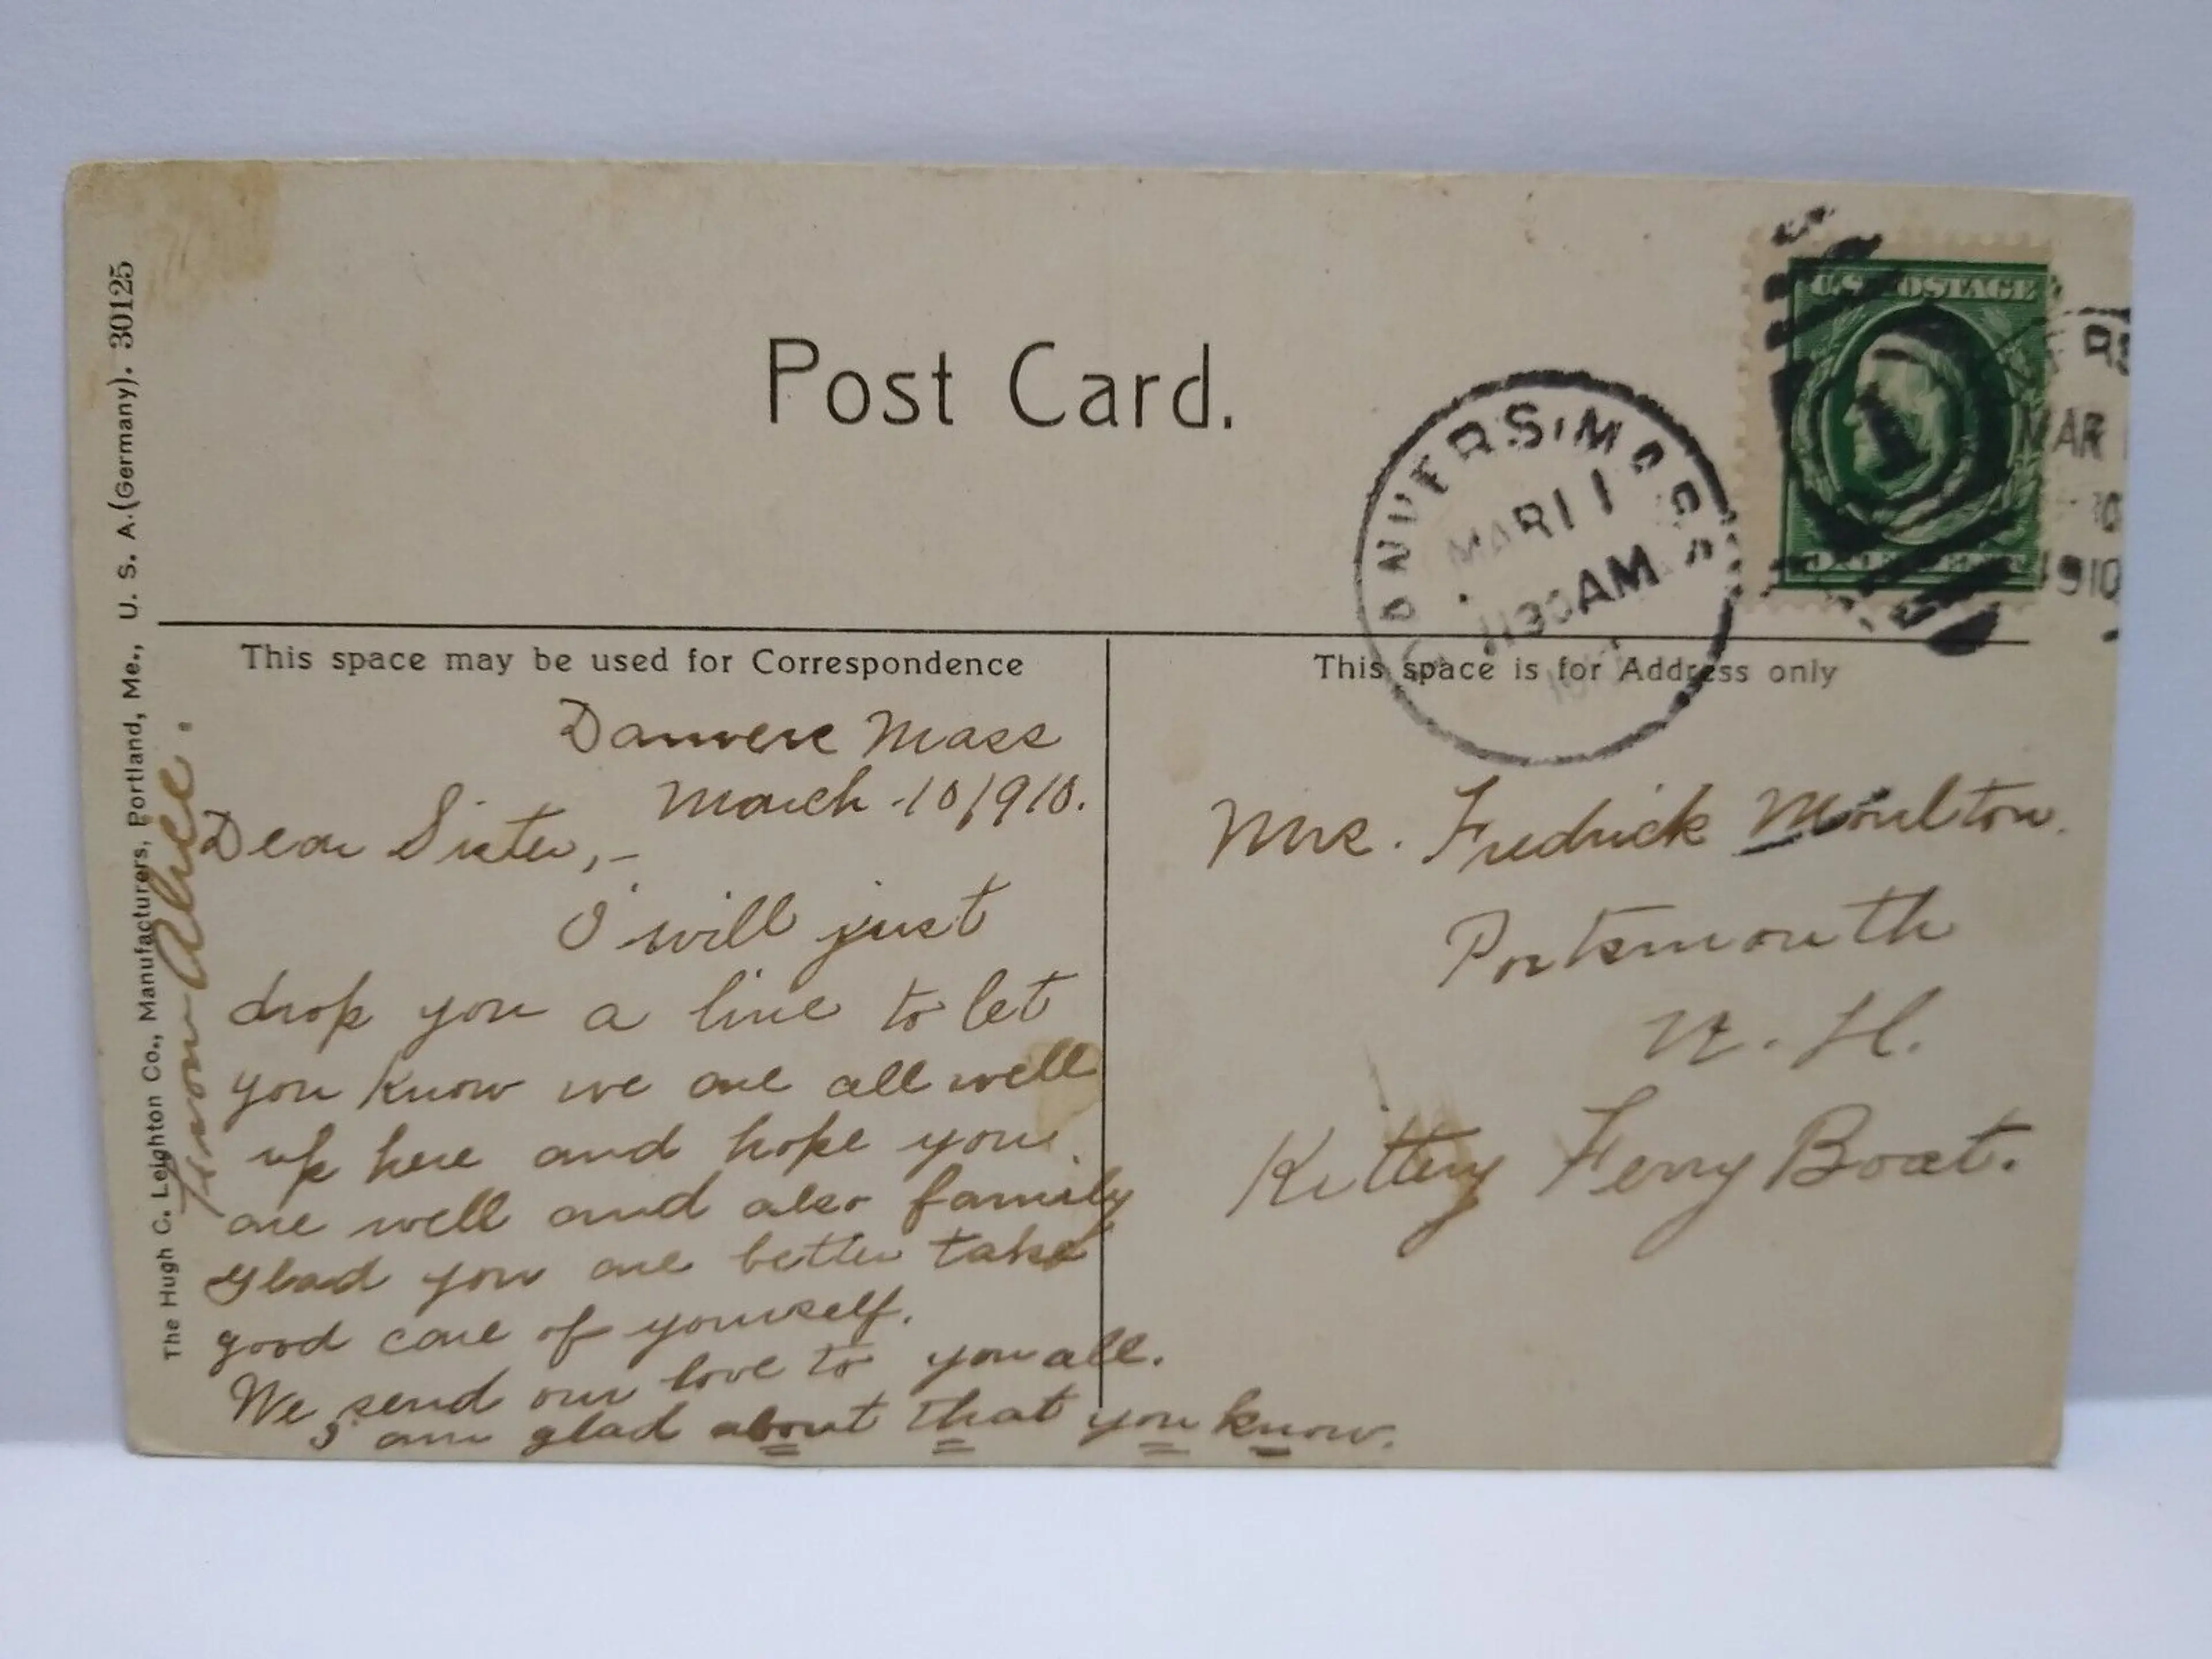 Post Card.
U.S. POSTAGE
1
DANVERS, MASS.
MAR 11
1130 AM
RS
MAR
1910
The Hugh C. Leighton Co., Manufacturers, Portland, Me., U. S. A. (Germany). 30125
This space may be used for Correspondence
Danvers Mass
March 10/910.
Dear Sister,-
I will just
drop you a line to let
you know we are all well
up here and hope you
are well and also family
glad you are better take
good care of yourself.
We send our love to you all.
I am glad about that you know.
From Alice.
This space is for Address only
Mrs. Fredrick Moulton.
Portsmouth
N. H.
Kittery Ferry Boat.